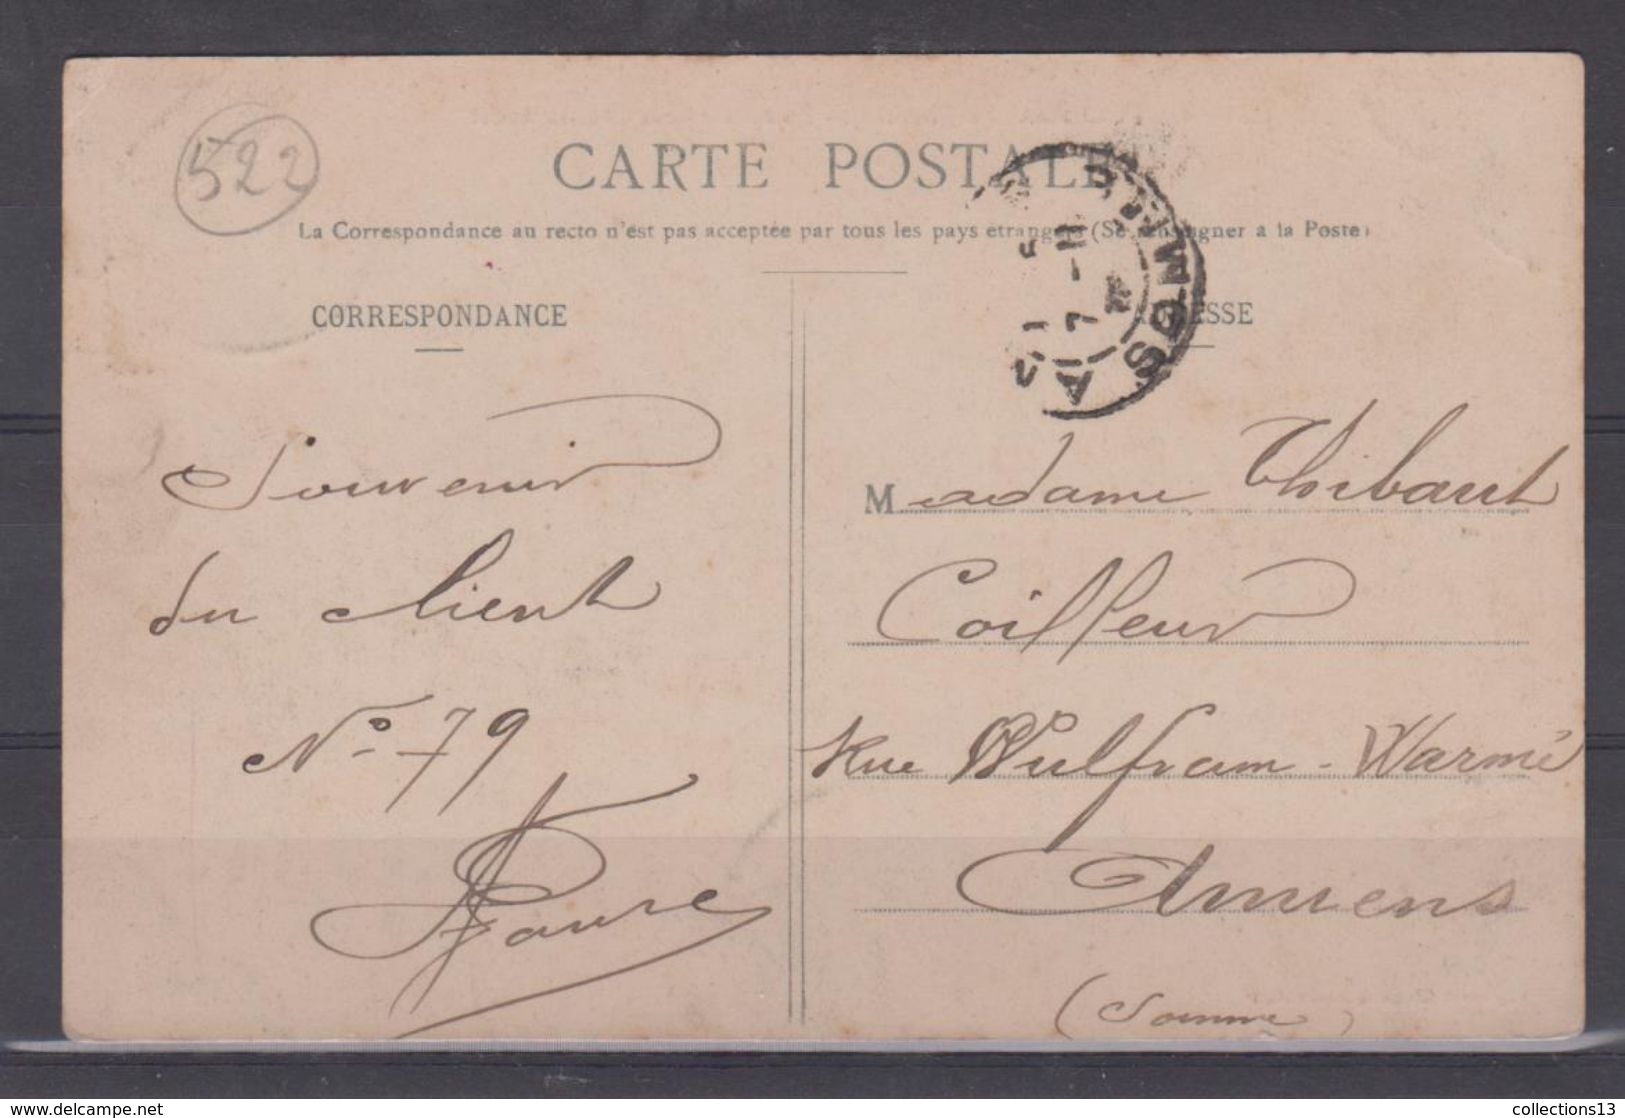 522
CARTE POSTALE
La Correspondance au recto n'est pas acceptée par tous les pays étrangers (Se renseigner a la Poste)
CORRESPONDANCE
ADRESSE
Souvenir
du client
No 79
Faure
Madame Thibaut
Coiffeur
Rue Wulfram-Warmé
Amiens
(Somme)
SOMME
© www.delcampe.net
collections13